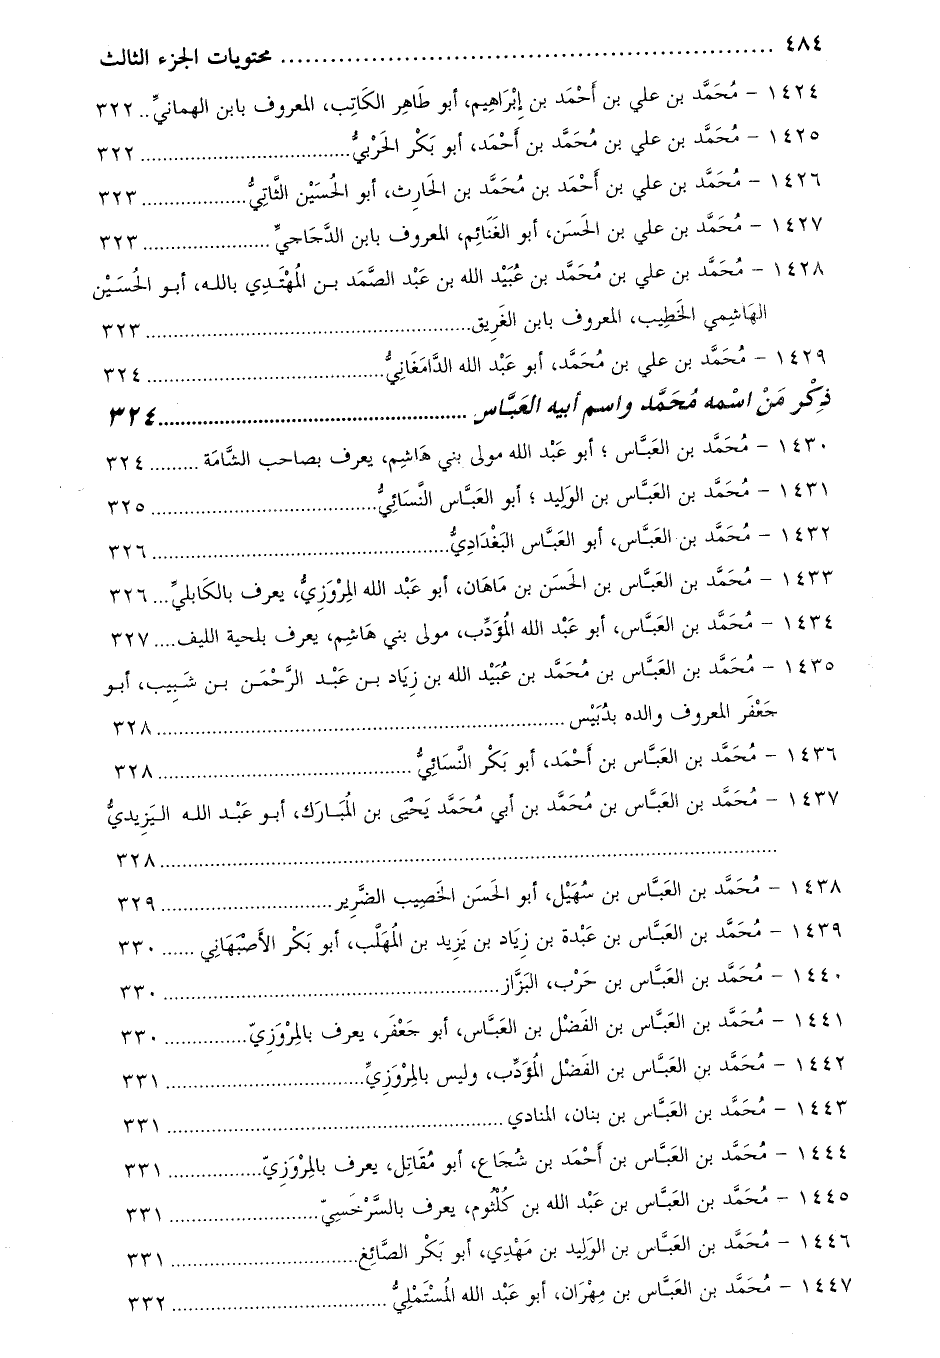 ٤٨٤ ............ محتويات الجزء الثالث
١٤٢٤ – مُحَمَّد بن علي بن أَحْمَد بن إِبْرَاهِيم، أبو طَاهِر الكَاتِب، المعروف بابن الهمانيِّ.. ٣٢٢
١٤٢٥ – مُحَمَّد بن علي بن مُحَمَّد بن أَحْمَد، أبو بَكْر الحَرْبيُّ............ ٣٢٢
١٤٢٦ – مُحَمَّد بن علي بن أَحْمَد بن مُحَمَّد بن الحَارِث، أبو الحُسَيْن الثَّاتِيُّ............ ٣٢٣
١٤٢٧ – مُحَمَّد بن علي بن الحَسَن، أبو الغَنَائِم، المعروف بابن الدَّجَاجيِّ............ ٣٢٣
١٤٢٨ – مُحَمَّد بن علي بن مُحَمَّد بن عُبَيْد الله بن عَبْد الصَّمَد بن المُهْتَدِي بالله، أبو الحُسَيْن
الهَاشِمي الخَطِيب، المعروف بابن الغَرِيق............ ٣٢٣
١٤٢٩ – مُحَمَّد بن علي بن مُحَمَّد، أبو عَبْد الله الدَّامَغَانِيُّ............ ٣٢٤
ذِكْر مَنْ اسْمه مُحَمَّد واسم أبيه العَبَّاس ............ ٣٢٤
١٤٣٠ – مُحَمَّد بن العَبَّاس ؛ أبو عَبْد الله مولى بني هَاشِم، يعرف بصاحب الشَّامَة ......... ٣٢٤
١٤٣١ – مُحَمَّد بن العَبَّاس بن الوَلِيد ؛ أبو العَبَّاس النَّسَائِيُّ............ ٣٢٥
١٤٣٢ – مُحَمَّد بن العَبَّاس، أبو العَبَّاس البَغْدَادِيُّ............ ٣٢٦
١٤٣٣ – مُحَمَّد بن العَبَّاس بن الحَسَن بن مَاهَان، أبو عَبْد الله المِرْوَزِيُّ، يعرف بالكَابليِّ... ٣٢٦
١٤٣٤ – مُحَمَّد بن العَبَّاس، أبو عَبْد الله المُؤَدِّب، مولى بني هَاشِم، يعرف بلحية الليف.... ٣٢٧
١٤٣٥ – مُحَمَّد بن العَبَّاس بن مُحَمَّد بن عُبَيْد الله بن زِيَاد بن عَبْد الرَّحْمَن بن شَبِيب، أبو
جَعْفَر المعروف والده بدُبَيْس ............ ٣٢٨
١٤٣٦ – مُحَمَّد بن العَبَّاس بن أَحْمَد، أبو بَكْر النَّسَائِيُّ............ ٣٢٨
١٤٣٧ – مُحَمَّد بن العَبَّاس بن مُحَمَّد بن أبي مُحَمَّد يَحْيَى بن المُبَارَك، أبو عَبْد الله اليَزِيدِيُّ
............ ٣٢٨
١٤٣٨ – مُحَمَّد بن العَبَّاس بن سُهَيْل، أبو الحَسَن الخَصِيب الضَّرِير............ ٣٢٩
١٤٣٩ – مُحَمَّد بن العَبَّاس بن عَبْدة بن زِيَاد بن يَزِيد بن المُهَلَّب، أبو بَكْر الأَصْبَهَانِي ...... ٣٣٠
١٤٤٠ – مُحَمَّد بن العَبَّاس بن حَرْب، البَزَّاز............ ٣٣٠
١٤٤١ – مُحَمَّد بن العَبَّاس بن الفَضْل بن العَبَّاس، أبو جَعْفَر، يعرف بالمِرْوَزِيّ............ ٣٣٠
١٤٤٢ – مُحَمَّد بن العَبَّاس بن الفَضْل المُؤَدِّب، وليس بالمِرْوَزِيِّ............ ٣٣١
١٤٤٣ – مُحَمَّد بن العَبَّاس بن بنان، المنادي ............ ٣٣١
١٤٤٤ – مُحَمَّد بن العَبَّاس بن أَحْمَد بن شُجَاع، أبو مُقَاتِل، يعرف بالمِرْوَزِيّ............ ٣٣١
١٤٤٥ – مُحَمَّد بن العَبَّاس بن عَبْد الله بن كُلْثُوم، يعرف بالسَّرْخَسِيّ............ ٣٣١
١٤٤٦ – مُحَمَّد بن العَبَّاس بن الوَلِيد بن مَهْدِي، أبو بَكْر الصَّائِغ............ ٣٣١
١٤٤٧ – مُحَمَّد بن العَبَّاس بن مِهْرَان، أبو عَبْد الله المُسْتَمْلِيُّ............ ٣٣٢